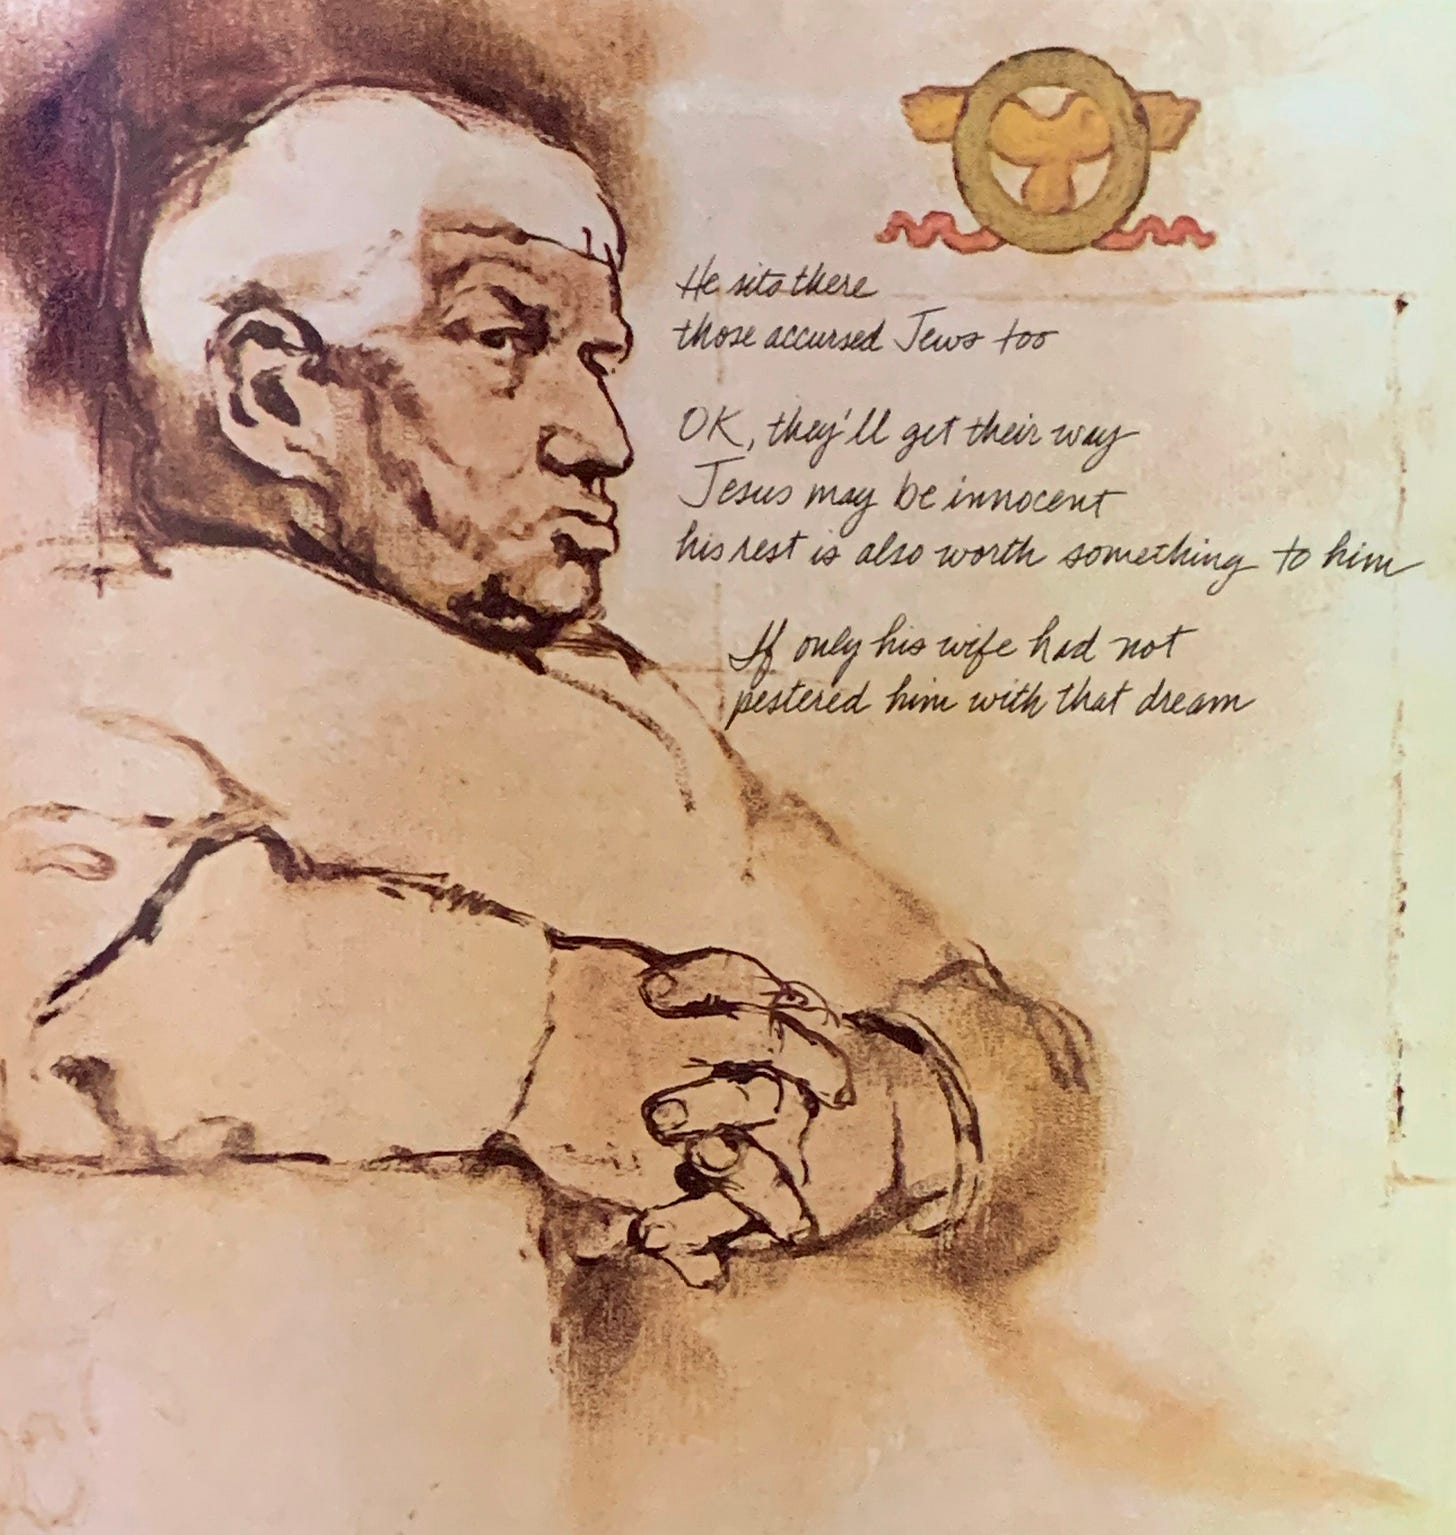 He sits there
those accursed Jews too
OK, they'll get their way
Jesus may be innocent
his rest is also worth something to him
If only his wife had not
pestered him with that dream